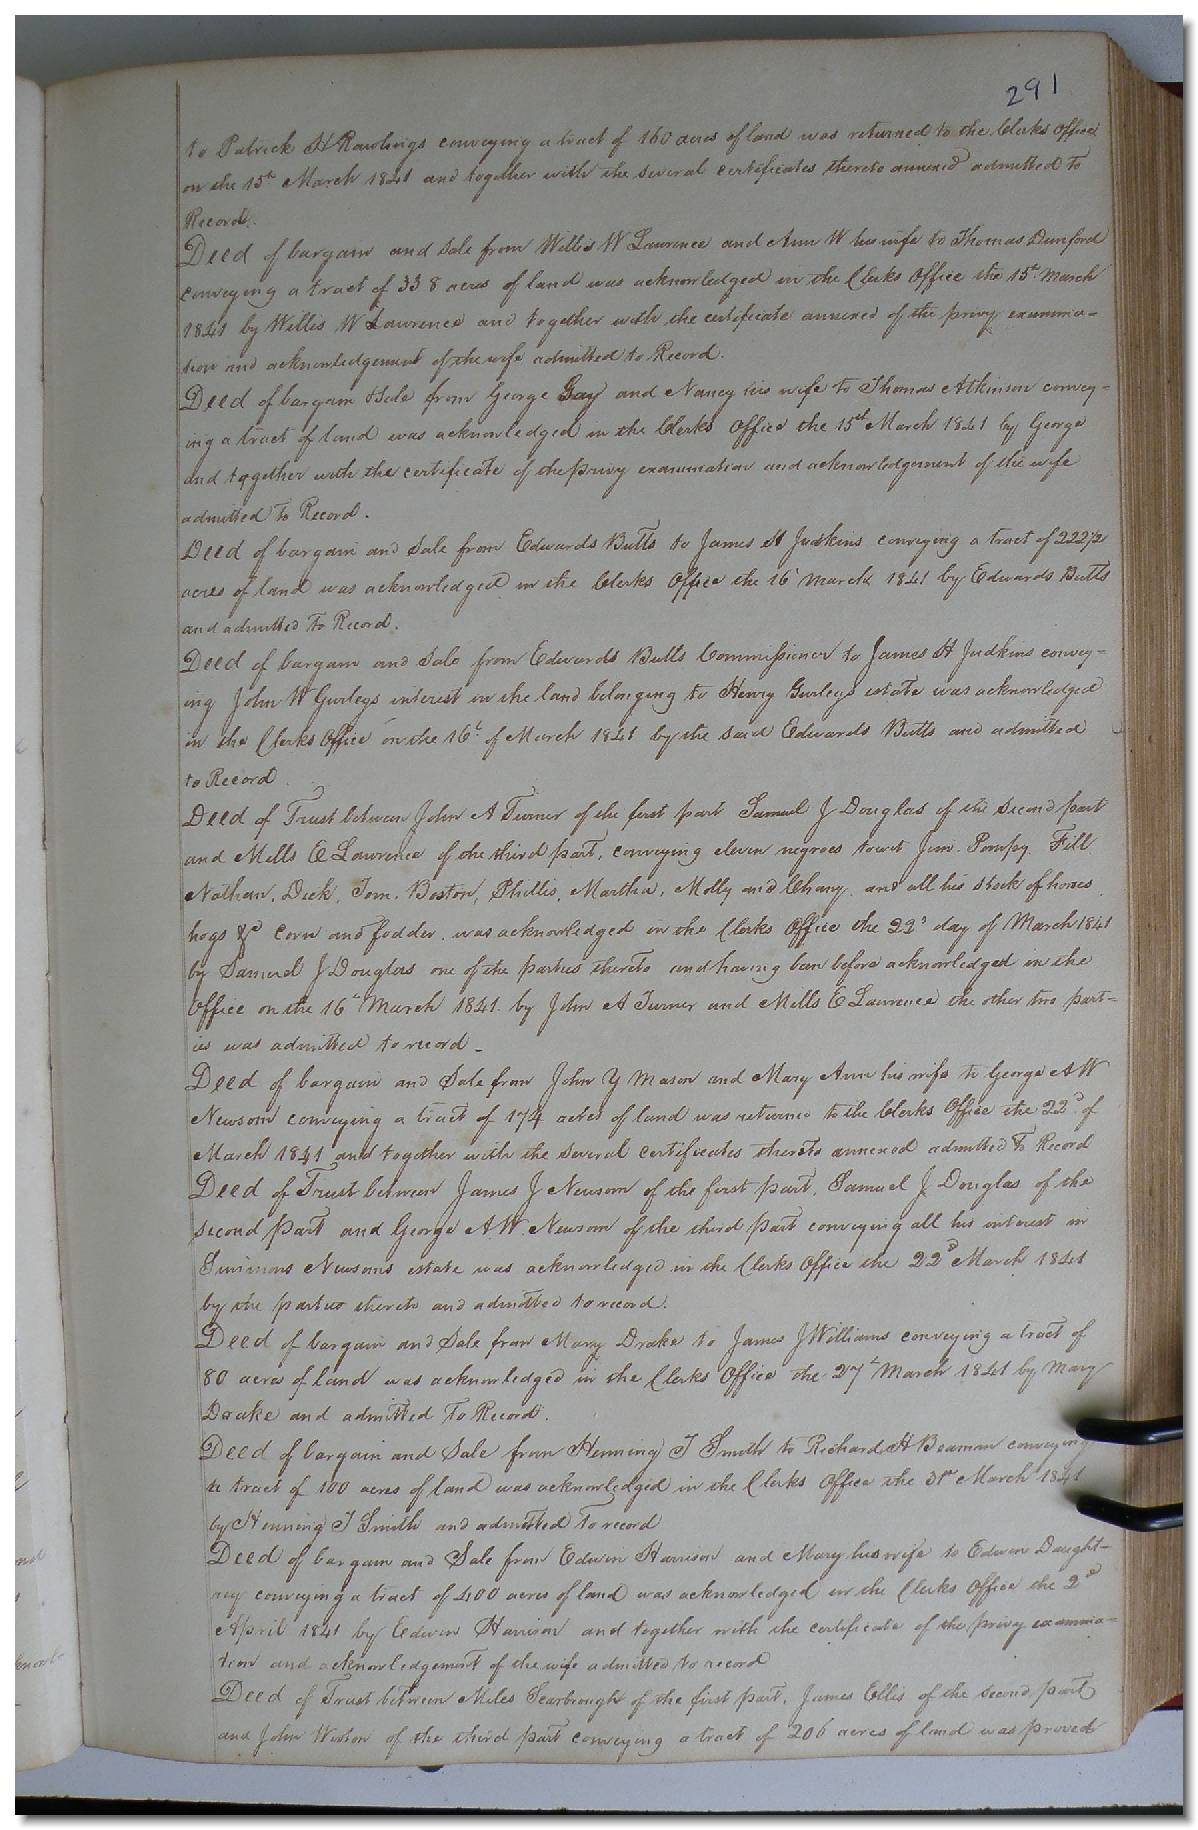 291
to Patrick H Rawlings conveying a tract of 160 acres of land was returned to the Clerks Office
on the 15th March 1841 and together with the several certificates thereto annexed admitted to
Record.
Deed of bargain and Sale from Willis W Lawrence and Ann W his wife to Thomas Dunford
conveying a tract of 338 acres of land was acknowledged in the Clerks Office the 15th March
1841 by Willis W Lawrence and together with the certificate annexed of the privy examina-
tion and acknowledgement of the wife admitted to Record.
Deed of bargain & Sale from George Gay and Nancy his wife to Thomas Atkinson convey=
ing a tract of land was acknowledged in the Clerks Office the 15th March 1841 by George
and together with the certificate of the privy examination and acknowledgement of the wife
admitted to Record.
Deed of bargain and Sale from Edwards Butts to James H Judkins conveying a tract of 222 1/2
acres of land was acknowledged in the Clerks Office the 16t March 1841 by Edwards Butts
and admitted to Record.
Deed of bargain and Sale from Edwards Butts Commissioner to James H Judkins convey=
ing John W Gurleys interest in the land belonging to Henry Gurleys estate was acknowledged
in the Clerks Office on the 16t of March 1841 by the said Edwards Butts and admitted
to Record
Deed of Trust between John A Turner of the first part Samuel J Douglas of the second part
and Mills E Lawrence of the third part, conveying eleven negroes towit Jim. Pompy. Fill
Nathan, Dick, Tom, Boston, Phillis, Martha, Molly and Chany. and all his stock of horses
hogs &c corn and fodder. was acknowledged in the Clerks Office the 22d day of March 1841
by Samuel J Douglas one of the parties thereto and having been before acknowledged in the
Office on the 16t March 1841. by John A Turner and Mills E Lawrence the other two part=
ies was admitted to record -
Deed of bargain and Sale from John Y Mason and Mary Ann his wife to George A W
Newsom conveying a tract of 174 acres of land was returned to the Clerks Office the 22d of
March 1841 and together with the several certificates thereto annexed admitted to Record
Deed of Trust between James J Newsom of the first part, Samuel J. Douglas of the
second part and George A. W. Newsom of the third part conveying all his interest in
Simmons Newsoms estate was acknowledged in the Clerks Office the 22d March 1841
by the parties thereto and admitted to record.
Deed of bargain and Sale from Mary Drake to James J Williams conveying a tract of
80 acres of land was acknowledged in the Clerks Office the 27t March 1841 by Mary
Drake and admitted to Record.
Deed of bargain and Sale from Henning T Smith to Richard H Beaman conveying
a tract of 100 acres of land was acknowledged in the Clerks Office the 31st March 1841
by Henning T Smith and admitted to record
Deed of bargain and Sale from Edwin Harrison and Mary his wife to Edwin Daught-
rey conveying a tract of 400 acres of land was acknowledged in the Clerks Office the 2d
April 1841 by Edwin Harrison and together with the certificate of the privy examina-
tion and acknowledgement of the wife admitted to record
Deed of Trust between Miles Scarbrough of the first part, James Ellis of the second part
and John of the third part conveying a tract of 206 acres of land was proved